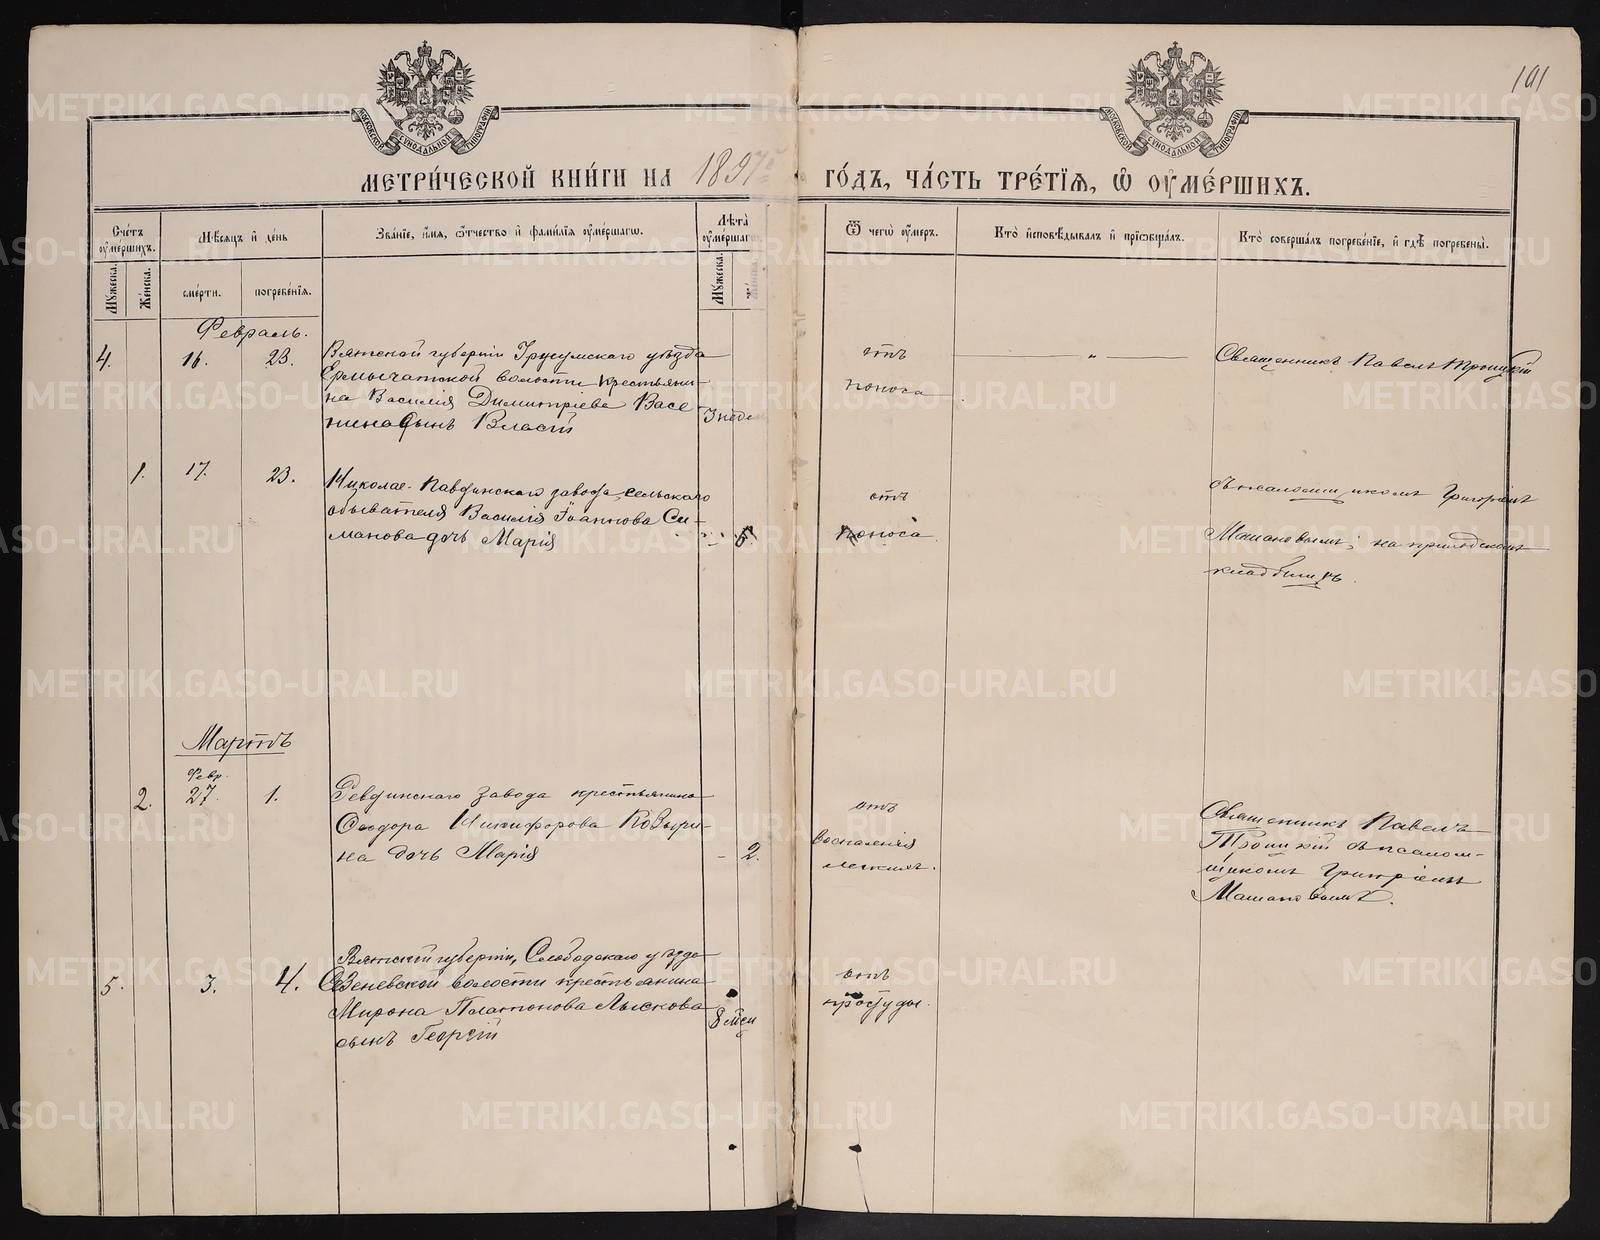 191
МОСКОВСКОЙ СѴНОДАЛЬНОЙ ТИПОГРАФІИ
МОСКОВСКОЙ СѴНОДАЛЬНОЙ ТИПОГРАФІИ
МЕТРИ́ЧЕСКОЙ КНИ́ГИ НА 1897 ГО́ДЪ, ЧА́СТЬ ТРЕ́ТІѦ, Ѡ ОУМЕ́РШИХЪ.
Сче́тъ оуме́ршихъ.
Му́жеска.
Же́нска.
Мѣ́сяцъ и де́нь
сме́рти.
погребе́нїѧ.
Зва́нїе, и́мѧ, ѻ́тчество и фами́лїѧ оуме́ршагѡ.
Лѣ́та оуме́ршагѡ
Му́жеска.
Ѿ чегѡ̀ оу́меръ.
Кто̀ и҆сповѣ́дывалъ и прїѡбща́лъ.
Кто̀ соверша́лъ погребе́нїе, и гдѣ̀ погребены̀.
Февраль.
4. 16. 23.
Вятской губерніи Уржумскаго уѣзда
волости крестьяни-
на Василія Димитріева Васе
нина сынъ Власій
3 недели
отъ
поноса
"
Священникъ Павелъ Троицкій
1. 17. 23.
Николае-Павдинскаго завода, сельскаго
обывателя Василія Іоаннова Си-
манова дочь Марія
5.
отъ
поноса
съ псаломщикомъ Григоріемъ
Машановымъ; на приходскомъ
кладбищѣ.
Мартъ
Февр.
2. 27. 1.
Ревдинскаго завода крестьянина
Ѳеодора Никифорова Козыри-
на дочь Марія
- 2.
отъ
воспаленія
легкихъ.
Священникъ Павелъ
Троицкій съ псалом-
щикомъ Григоріемъ
Машановымъ.
5. 3. 4.
Вятской губерніи, Слободскаго уѣзда
волости крестьянина
Мирона Платонова Лыскова
сынъ Георгій
8 мѣся
отъ
простуды.
METRIKI.GASO-URAL.RU